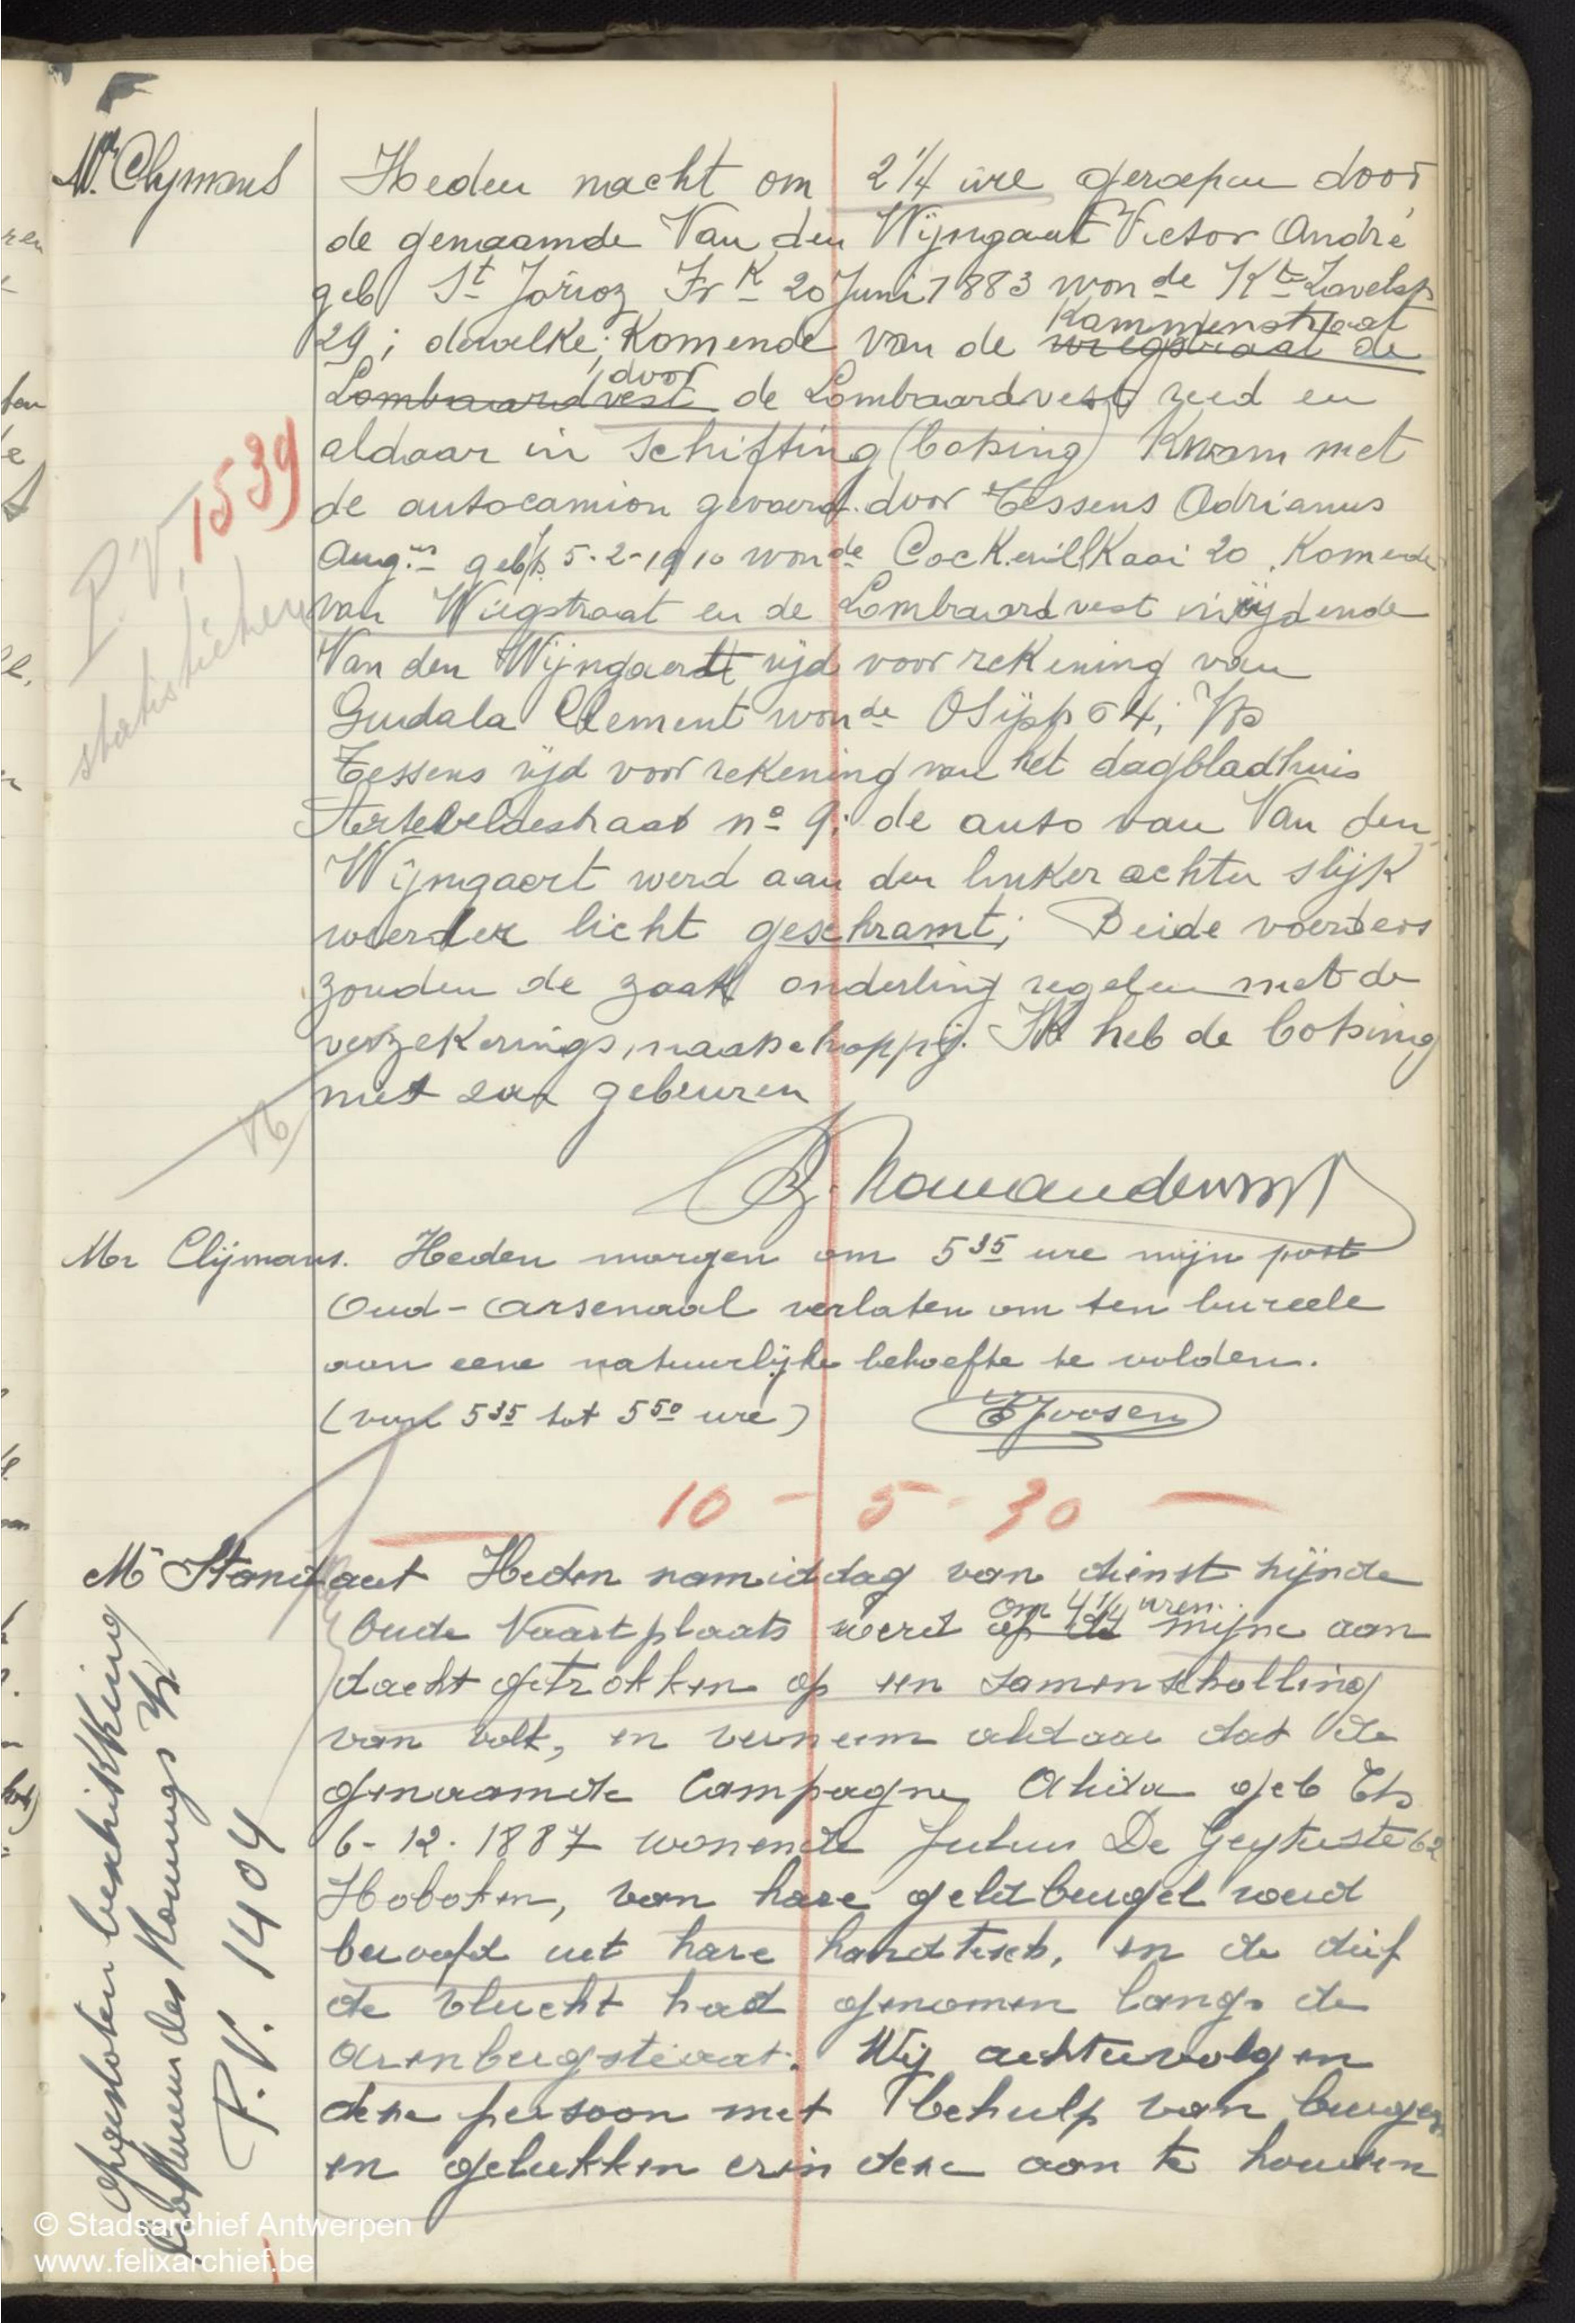 Mr. Clymans
Heden nacht om 2 1/4 ure geroepen door
de genaamde Van den Wijngaert Victor André
geb St Joris Fr K 20 Juni 1883 wonde Kte Zavelstr
29; dewelke; komende van de Kammenstraat
wiegstraat de
Lombaardvest door de Lombaardvest reed en
aldaar in schifting (botsing) kwam met
de autocamion gevoerd door Tessens Adrianus
Augus geb/h. 5-2-1910 wonde Cockerillkaai 20, komende
van Wiegstraat en de Lombaardvest inrijdende
Van den Wijngaerdt rijd voor rekening van
Gudala Clement wonde Osijstr 64;
Tessens rijd voor rekening van het dagbladhuis
Arteveldestraat no 9; de auto van Van den
Wijngaert werd aan den linker achter slijk
weerder licht geschramt; Beide voerders
zouden de zaak onderling regelen met de
verzekeringsmaatschappij. Ik heb de botsing
niet zien gebeuren
P.V. 1539
statistieken
Mr Clijmans. Heden morgen om 5 35 ure mijn post
Oud-Arsenaal verlaten om ten bureele
aan eene natuurlijke behoefte te volden.
(van 5 35 tot 5 50 ure) Joosen
10 - 5 - 30 -
Mr Standaert Heden namiddag van dienst zijnde
Oude Vaartplaats werd om 4 1/4 uren mijne aan
dacht getrokken op een samenscholling
van volk, en verneem aldaar dat de
genaamde Campagne Alida geb Ets
6-12-1887 wonende Julius De Geyterstr 62
Hoboken, van hare geldbeugel werd
beroofd uit hare handtesch, en de dief
de vlucht had genomen langs de
Arenbergstraat. Wij achtervolgen
deze persoon met behulp van burgers
en gelukken erin deze aan te houden
opgesloten beschikking
des Konings
P.V. 1404
© Stadsarchief Antwerpen
www.felixarchief.be